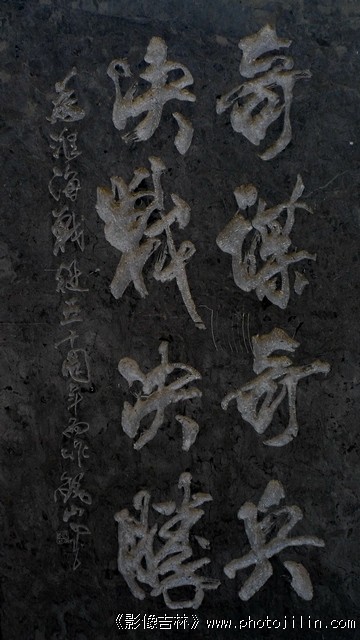 奇谋奇兵
决战决胜
为淮海战役五十周年而作
《影像吉林》www.photojilin.com